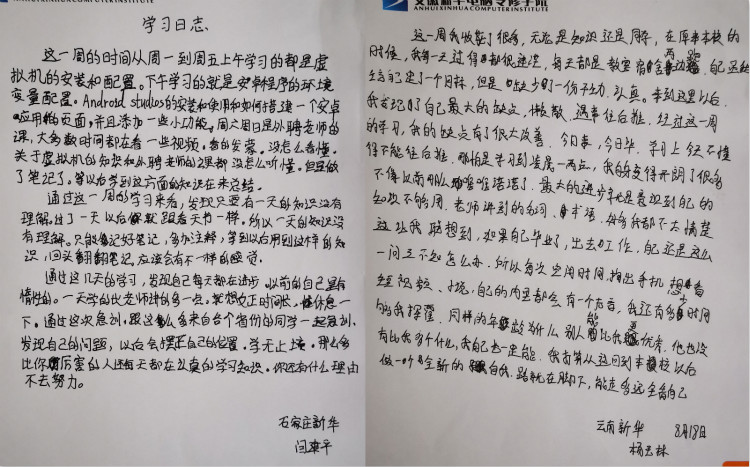 学习日志
这一周的时间从周一到周五上午学习的都是虚
拟机的安装和配置。下午学习的就是安卓程序的环境
变量配置。Android studios的安装和使用和如何搭建一个安卓
应用的页面，并且添加一些小功能。周六周日是外聘老师的
课，大多数时间都在看一些视频，看的发蒙。没怎么看懂。
关于虚拟机的知识和外聘老师的课都没怎么听懂。但是做
了笔记了。等以后学到这方面的知识在来总结。
通过这一周的学习来看，发现只要有一天的知识没有
理解。过了一天以后就跟看天书一样。所以一天的知识没
有理解。只能做记好笔记，多加注解，等到以后用到这样的知
识，回头翻翻笔记，应该会有不一样的感觉。
通过这几天的学习，发现自己每天都在进步。以前的自己是有
惰性的。一天学的比老师讲的多一点。
下。通过这次急训，跟这么多来自各个省份的同学一起急训，
发现自己的问题，以后会摆正自己的位置。学无止境。那么多
比你厉害的人还每天都在认真的学习知识。你还有什么理由
不去努力。
石家庄新华
闫
安徽新华电脑专修学院
ANHUI XINHUA COMPUTER INSTITUTE
这一周我收获了很多，无论是知识还是同学，在原来本校的
时候，我每一天过得都很迷茫，每天都是教室宿舍两边跑，自己
给自己定了一个目标，但是缺少了一份动力、认真。来到这里以后，
我发现了自己最大的缺点，懒散、遇事往后推，经过这一周
的学习，我的缺点有了很大改善，今日事，今日毕，学习上今天不懂
得不能往后推，哪怕是学习到凌晨一两点，我的变得开朗了很多
不像以前那么唯唯诺诺了。最大的进步就是意识到自己的
知识不够用，老师讲到的名词、术语，好多我都不太清楚
这让我联想到，如果自己毕业了，出去工作，自己还是这么
一问三不知怎么办，所以每次空闲时间，掏出手机想看
短视频、小说，自己的内里都会有一个声音，我还有多少时间
的我挥霍。同样的年龄为什么别人能比我更优秀，他也没
有比我多个什么，我自己也一定能，我打算从这回到本校以后
做一个全新的自我，路就在脚下，能走多远全靠自己
云南新华 8月18日
杨云林